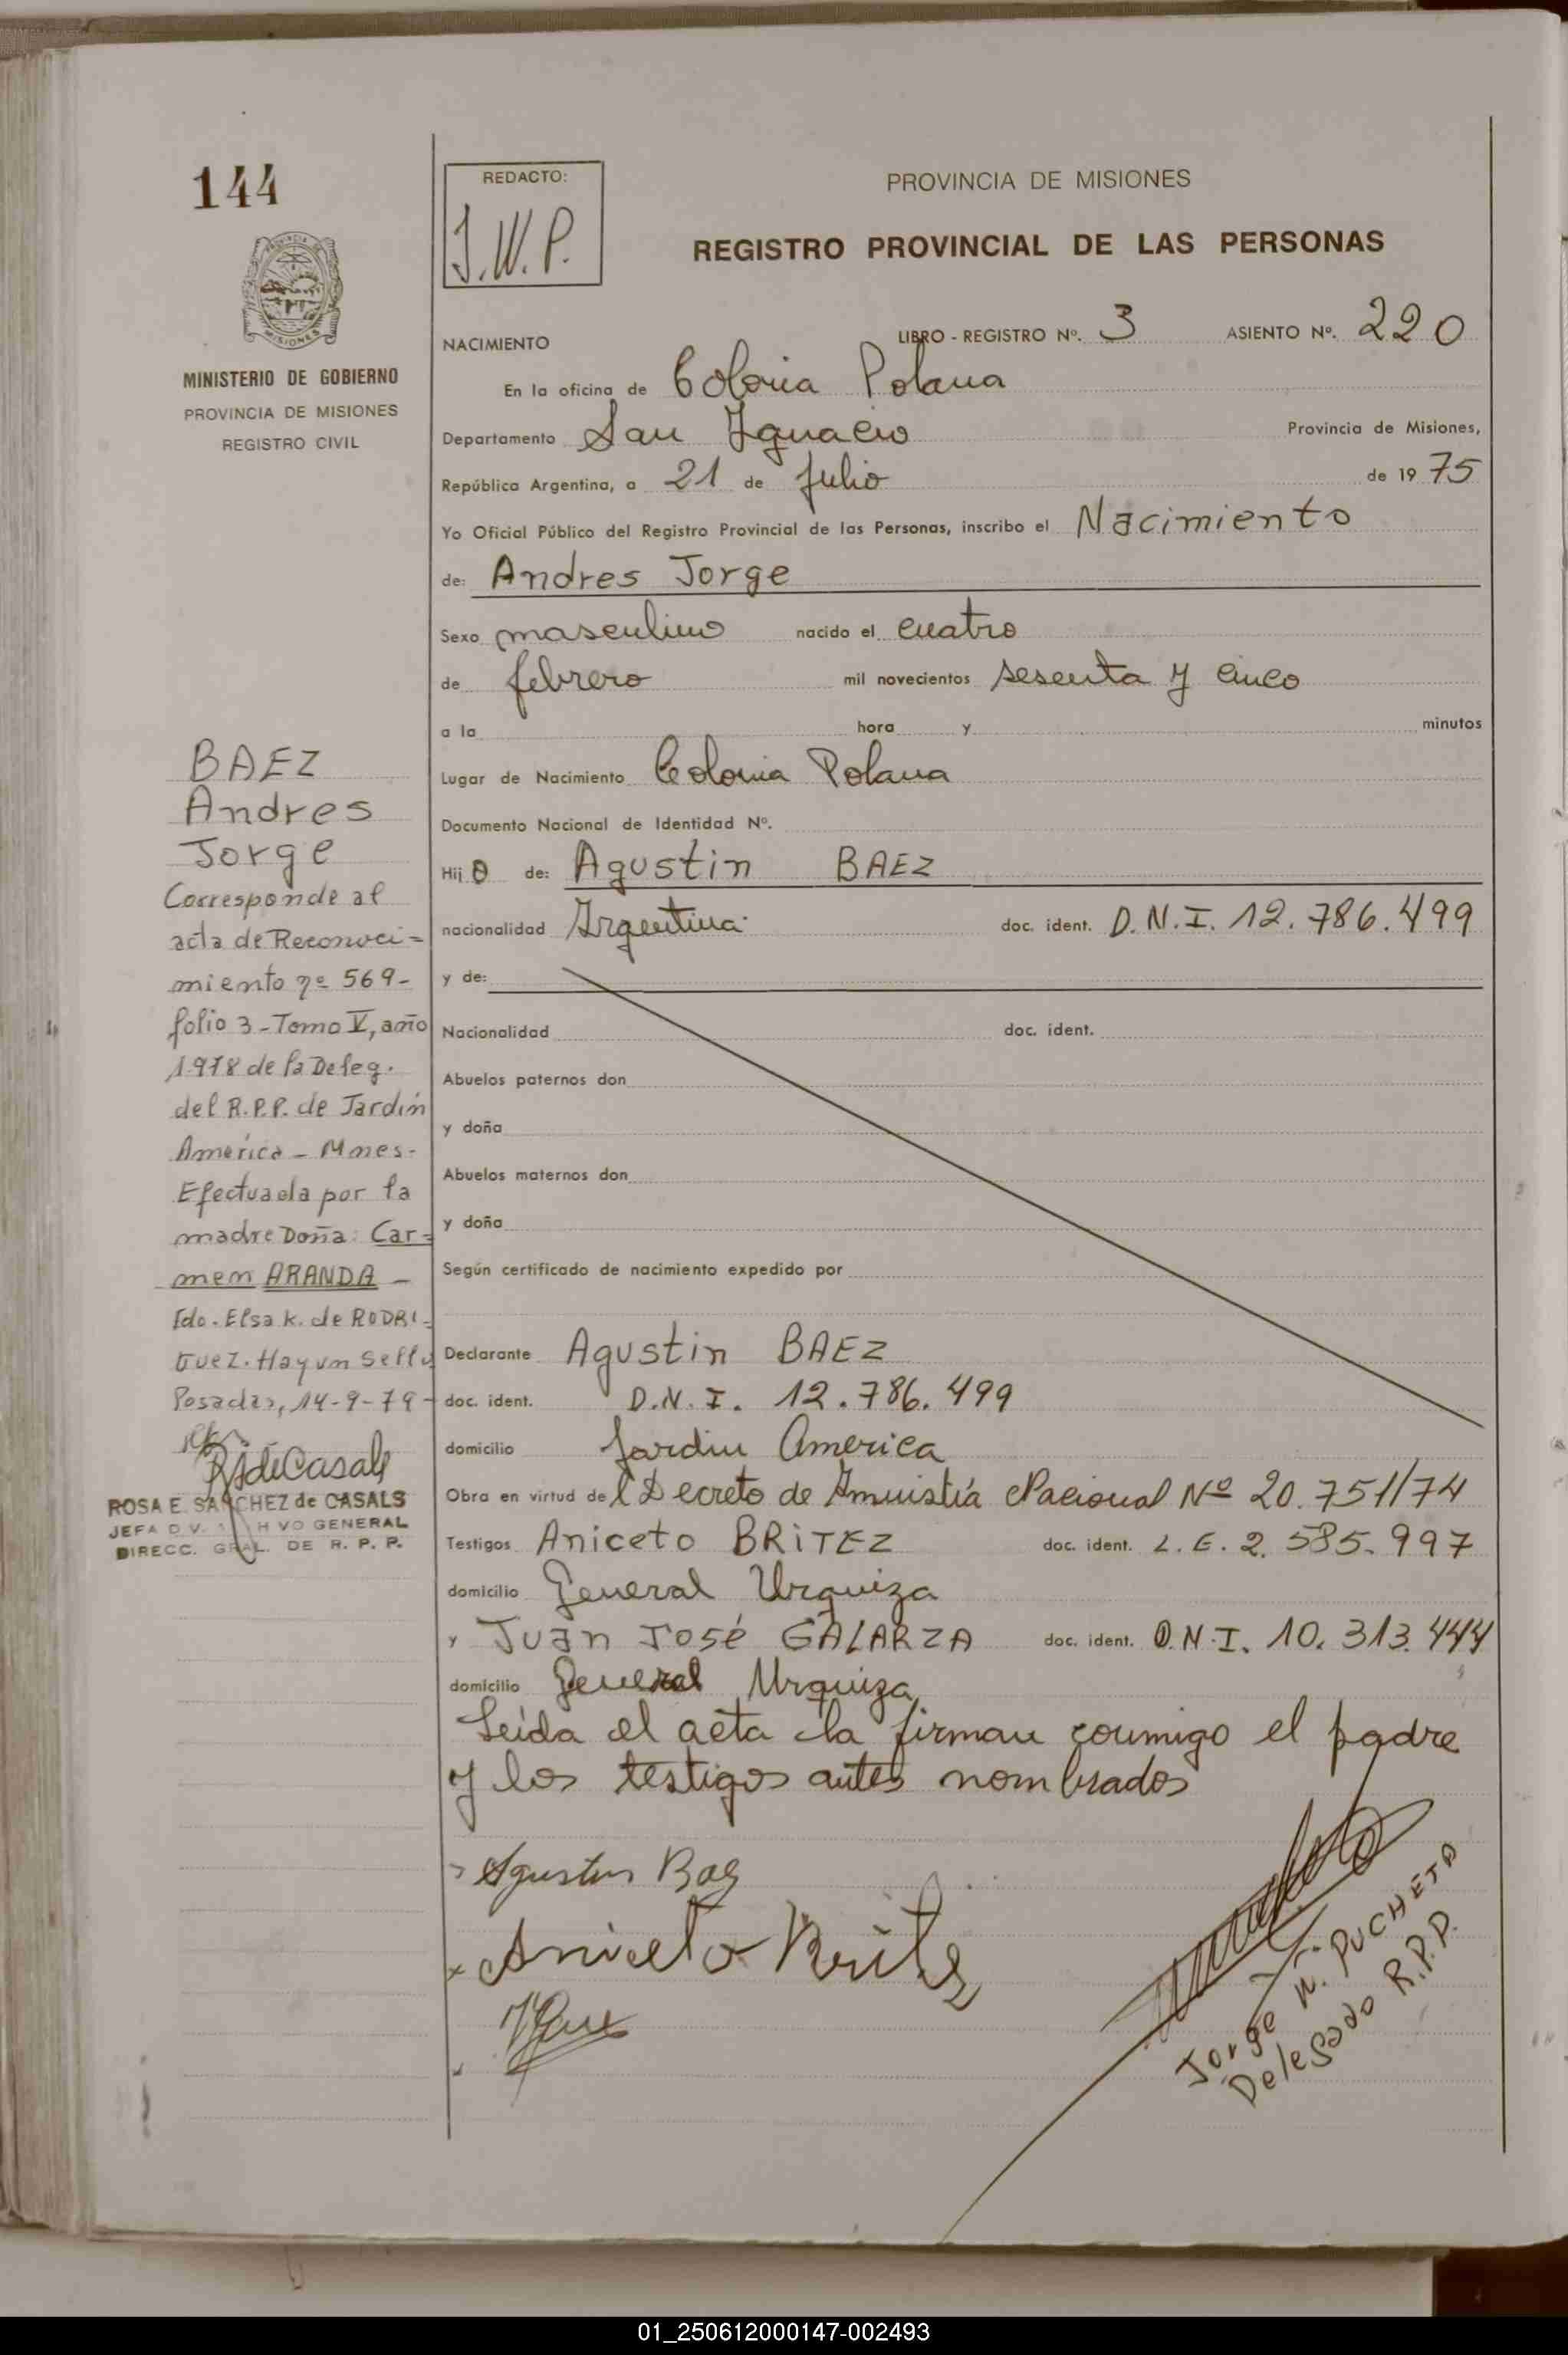 144
PROVINCIA DE MISIONES
MINISTERIO DE GOBIERNO
PROVINCIA DE MISIONES
REGISTRO CIVIL
BAEZ
Andres
Jorge
Corresponde al
acta de Reconoci=
miento nº 569-
folio 3 - Tomo V, año
1978 de la Deleg.
del R.P.P. de Jardín
América - Mnes-
Efectuada por la
madre Doña: Car=
men ARANDA -
Fdo. Elsa K. de RODRI-
GUEZ. Hay un sello
Posadas, 14-9-79-
ROSA E. SANCHEZ de CASALS
JEFA DIV. ARCHIVO GENERAL
DIRECC. GRAL. DE R. P. P.
REDACTO:
J.W.P.
PROVINCIA DE MISIONES
REGISTRO PROVINCIAL DE LAS PERSONAS
NACIMIENTO LIBRO - REGISTRO Nº. 3 ASIENTO Nº. 220
En la oficina de Colonia Polana
Departamento San Ignacio Provincia de Misiones,
República Argentina, a 21 de julio de 19 75
Yo Oficial Público del Registro Provincial de las Personas, inscribo el Nacimiento
de: Andres Jorge
Sexo masculino nacido el cuatro
de febrero mil novecientos sesenta y cinco
a la hora y minutos
Lugar de Nacimiento Colonia Polana
Documento Nacional de Identidad Nº.
Hij o de: Agustin BAEZ
nacionalidad Argentina doc. ident. D.N.I. 12.786.499
y de:
Nacionalidad doc. ident.
Abuelos paternos don
y doña
Abuelos maternos don
y doña
Según certificado de nacimiento expedido por
Declarante Agustin BAEZ
doc. ident. D.N.I. 12.786.499
domicilio Jardin America
Obra en virtud de l Decreto de Amnistía Nacional Nº 20.751/74
Testigos Aniceto BRITEZ doc. ident. L.E. 2.585.997
domicilio General Urquiza
y Juan José GALARZA doc. ident. D.N.I. 10.313.444
domicilio General Urquiza
Leída el acta la firman conmigo el padre
y los testigos antes nombrados
Agustin Baez
Aniceto Britez
Jorge W. PUCHETA
Delegado R.P.P.
01_250612000147-002493